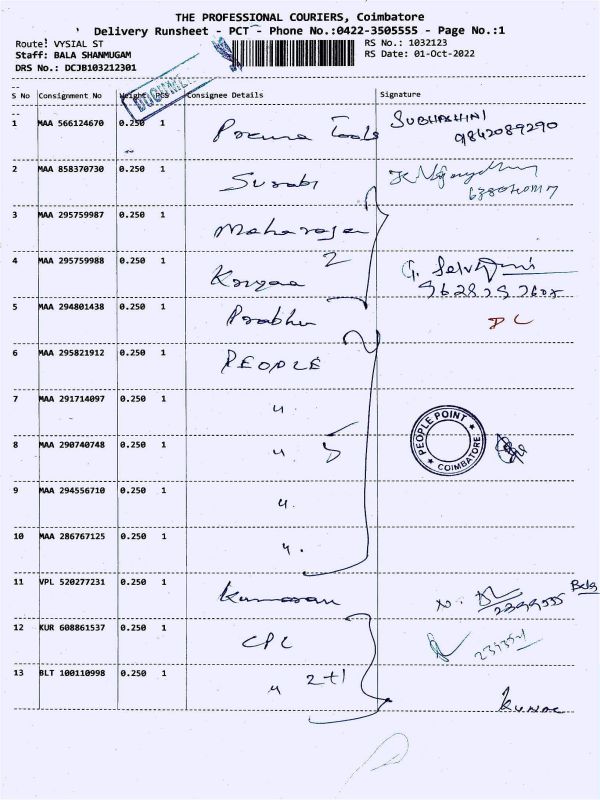 THE PROFESSIONAL COURIERS, Coimbatore
Delivery Runsheet - PCT - Phone No.:0422-3505555 - Page No.:1
Route: VYSIAL ST RS No.: 1032123
Staff: BALA SHANMUGAM RS Date: 01-Oct-2022
DRS No.: DCJB103212301
S No Consignment No Weight PCS Consignee Details Signature
1 MAA 566124670 0.250 1 Tools SUBHASHINI
9842089290
2 MAA 858370730 0.250 1 Surabi
3 MAA 295759987 0.250 1 Maharaja
4 MAA 295759988 0.250 1 2 G. Selvamani
5 MAA 294801438 0.250 1 Prabhu DC
6 MAA 295821912 0.250 1 PEOPLE
7 MAA 291714097 0.250 1 "
8 MAA 290740748 0.250 1 " 5 PEOPLE POINT COIMBATORE
9 MAA 294556710 0.250 1 "
10 MAA 286767125 0.250 1 "
11 VPL 520277231 0.250 1 Kumaran
12 KUR 608861537 0.250 1 CPC
13 BLT 100110998 0.250 1 " 2+1